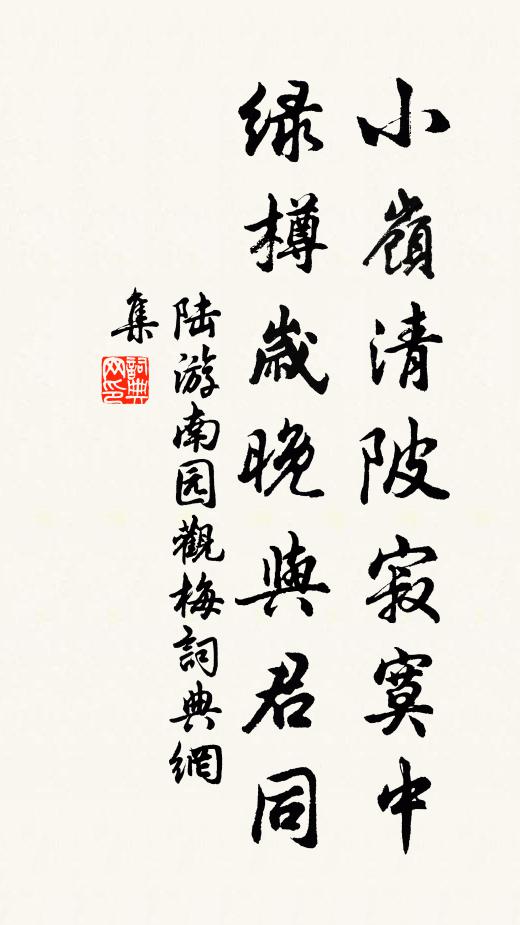 小嶺清陂寂寞中
緑樽歳晚與君同
陸游南园觀梅詞典網
集
詞典网印